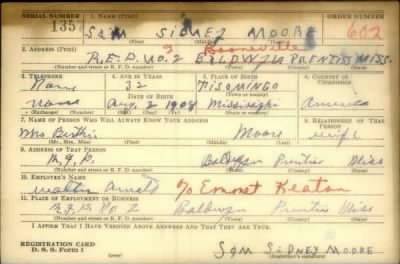 SERIAL NUMBER 1. NAME (Print) ORDER NUMBER
135 SAM SIDNEY MOORE 602
(First) (Middle) (Last)
2. ADDRESS (Print) 2 Booneville
R.F.D. NO. 2 BALDWYN PRENTISS MISS.
(Number and street or R. F. D. number) (Town) (County) (State)
3. TELEPHONE 4. AGE IN YEARS 5. PLACE OF BIRTH 6. COUNTRY OF CITIZENSHIP
None 32 TISOMINGO
DATE OF BIRTH (Town or county)
None Aug. 2 1908 Mississippi America
(Exchange) (Number) (Mo.) (Day) (Yr.) (State or country)
7. NAME OF PERSON WHO WILL ALWAYS KNOW YOUR ADDRESS 8. RELATIONSHIP OF THAT PERSON
Mrs Moore wife
(Mr., Mrs., Miss) (First) (Middle) (Last)
9. ADDRESS OF THAT PERSON
Baldwyn Prentiss Miss
(Number and street or R. F. D. number) (Town) (County) (State)
10. EMPLOYER'S NAME
Walter Arnold % Emmet Keaton
11. PLACE OF EMPLOYMENT OR BUSINESS
R.F.D. NO 2 Baldwyn Prentiss Miss
(Number and street or R. F. D. number) (Town) (County) (State)
I AFFIRM THAT I HAVE VERIFIED ABOVE ANSWERS AND THAT THEY ARE TRUE.
REGISTRATION CARD
D. S. S. Form 1 (over) SAM SIDNEY MOORE
(Registrant's signature)